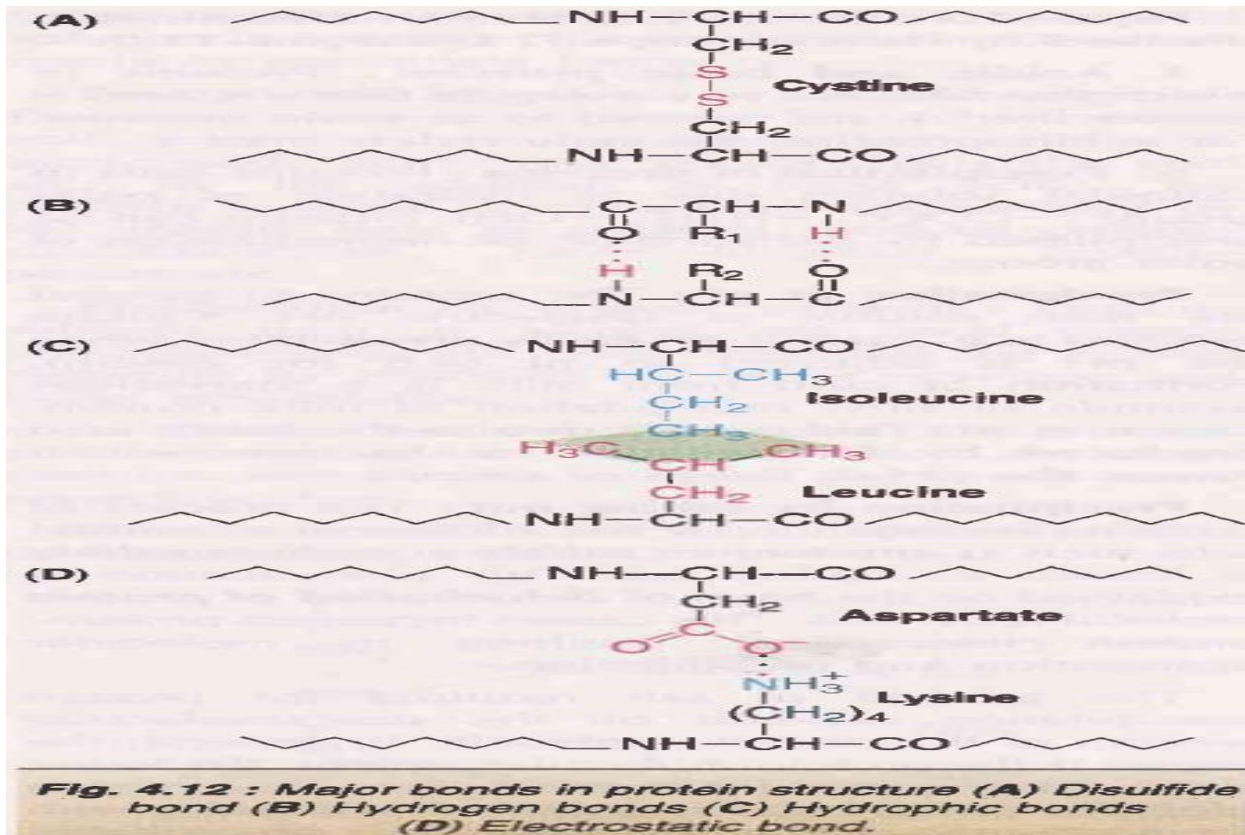 (A) NH—CH—CO
CH₂
S
S Cystine
CH₂
NH—CH—CO
(B) C—CH—N
O R₁ H
H R₂ O
N—CH—C
(C) NH—CH—CO
HC—CH₃
CH₂ Isoleucine
CH₃
H₃C CH₃
CH
CH₂ Leucine
NH—CH—CO
(D) NH—CH—CO
CH₂
C Aspartate
O O⁻
NH₃⁺
(CH₂)₄ Lysine
NH—CH—CO
Fig. 4.12 : Major bonds in protein structure (A) Disulfide
bond (B) Hydrogen bonds (C) Hydrophic bonds
(D) Electrostatic bond.